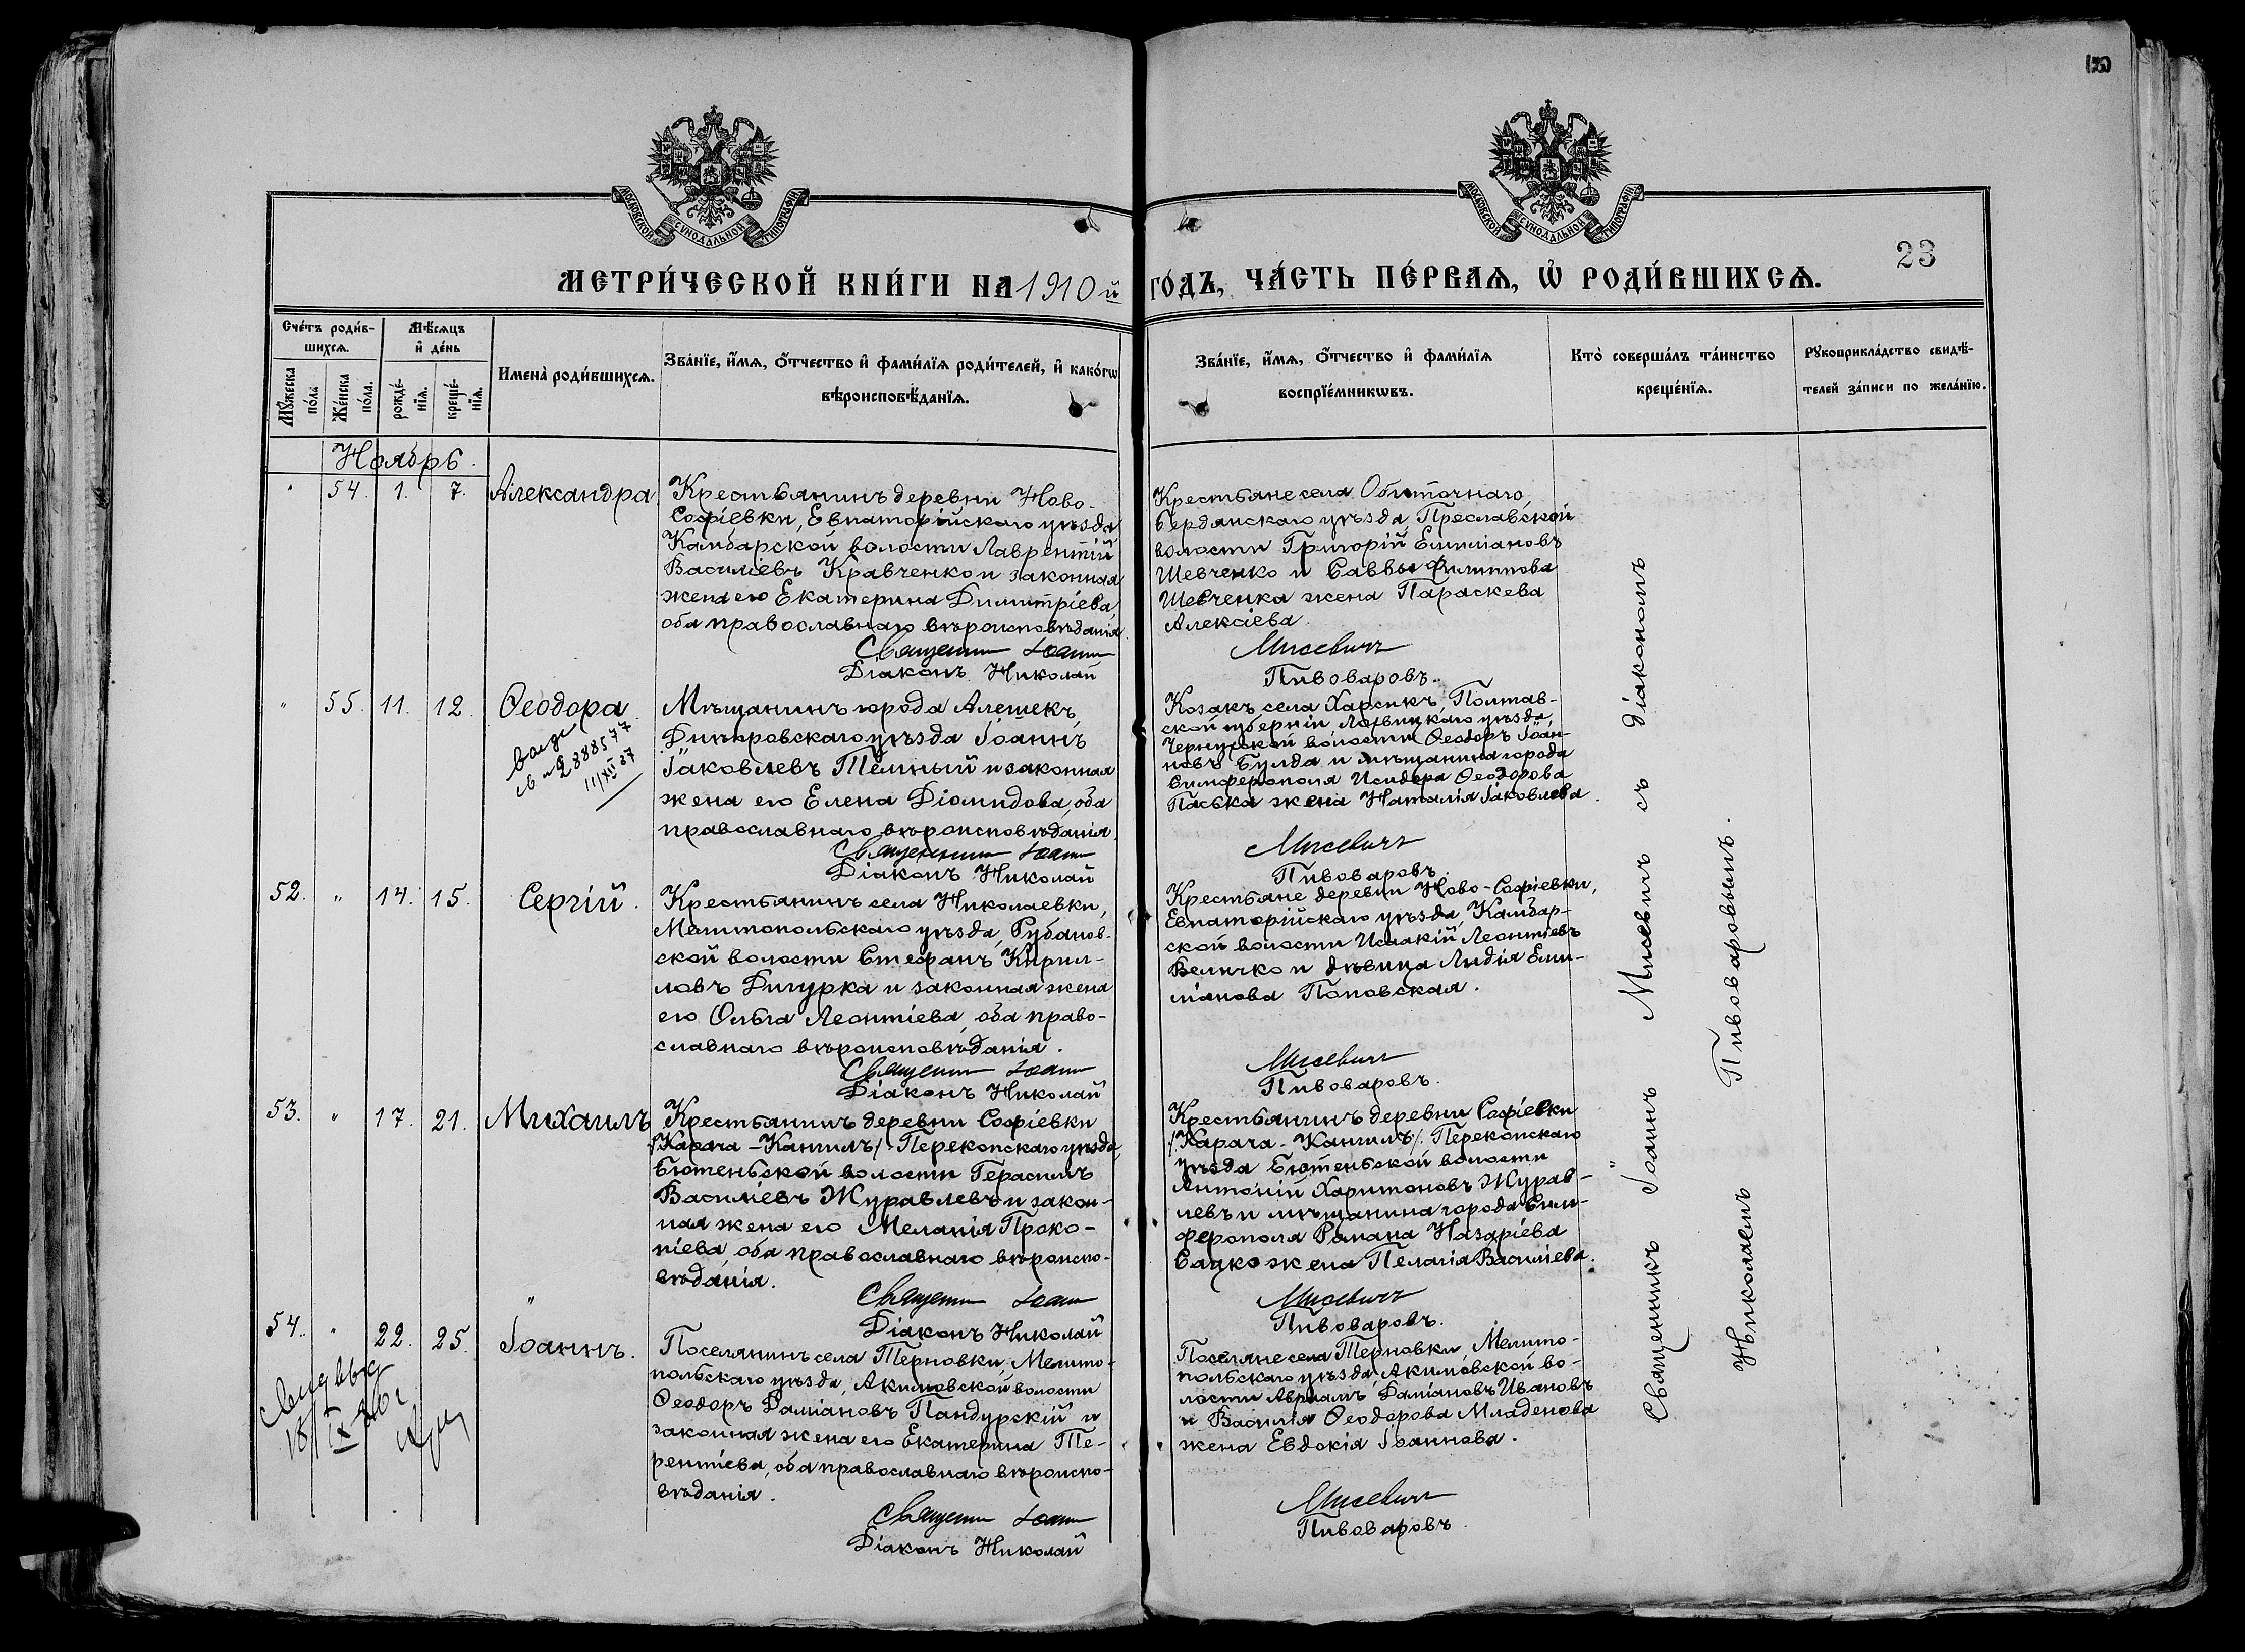 МОСКОВСКОЙ СѴНОДАЛЬНОЙ ТИПОГРАФІИ
МОСКОВСКОЙ СѴНОДАЛЬНОЙ ТИПОГРАФІИ
23
МЕТРИ́ЧЕСКОЙ КНИ́ГИ НА 1910й ГО́ДЪ, ЧА́СТЬ ПЕ́РВАѦ, Ѡ РОДИ́ВШИХСѦ.
Сче́тъ роди́в-
шихсѧ.
Мѣ́сѧцъ
и҆ де́нь
Мꙋ́жеска
по́ла
Же́нска
по́ла.
рожде́-
нїѧ.
креще́-
нїѧ.
Имена̀ роди́вшихсѧ.
Зва́нїе, и҆́мѧ, ѻ҆́тчество и҆ фами́лїѧ роди́телей, и҆ како́гѡ
вѣроисповѣ́данїѧ.
Зва́нїе, и҆́мѧ, ѻ҆́тчество и҆ фами́лїѧ
воспрїе́мникѡвъ.
Кто̀ соверша́лъ та́инство
креще́нїѧ.
Рꙋкоприкла́дство свидѣ́-
телей за́писи по жела́нїю.
Ноябрь.
" 54. 1. 7. Александра
Крестьянинъ деревни Ново-
Софіевки, Евпаторійскаго уѣзда
Камбарской волости Лаврентій
Василіевъ Кравченко и законная
жена его Екатерина Димитріева,
оба православнаго вѣроисповѣданія.
Священник Іоанн
Діаконъ Николай
Крестьяне села Обиточнаго
Бердянскаго уѣзда, Преславской
волости Григорій Емиліановъ
Шевченко и Саввы Филиппова
Шевченка жена Параскева
Алексіева.
Мисевич
Пивоваровъ.
" 55. 11. 12. Ѳеодора.
св № 2888577
11/XII 37
Мѣщанинъ города Алешекъ,
Днѣпровскаго уѣзда Іоаннъ
Іаковлевъ Темный и законная
жена его Елена Діомидова, оба
православнаго вѣроисповѣданія.
Священник Іоанн
Діаконъ Николай
Козакъ села Харсикъ, Полтав-
ской губерніи, Лохвицкаго уѣзда,
Чернухской волости Ѳеодоръ Іоан-
новъ Булда и мѣщанина города
Симферополя Исидора Ѳеодорова
Паська жена Наталія Іаковлева.
Мисевич
Пивоваровъ.
52. " 14. 15. Сергій.
Крестьянинъ села Николаевки,
Мелитопольскаго уѣзда, Рубанов-
ской волости Стефанъ Кирил-
ловъ Дигурка и законная жена
его Ольга Леонтіева, оба право-
славнаго вѣроисповѣданія.
Священник Іоанн
Діаконъ Николай
Крестьяне деревни Ново-Софіевки,
Евпаторійскаго уѣзда, Камбар-
ской волости Исаакій Леонтіевъ
Величко и дѣвица Лидія Еми-
ліанова Поповская.
Мисевич
Пивоваровъ.
53. " 17. 21. Михаилъ
Крестьянинъ деревни Софіевки
/Карача-Кангилъ/ Перекопскаго уѣзда,
Бютеньской волости Герасимъ
Василіевъ Журавлевъ и закон-
ная жена его Меланія Проко-
піева, оба православнаго вѣроиспо-
вѣданія.
Священник Іоанн
Діаконъ Николай
Крестьянинъ деревни Софіевки
/Карача-Кангилъ/ Перекопскаго
уѣзда Бютеньской волости
Антоній Харитоновъ Журав-
левъ и мѣщанина города Сим-
ферополя Романа Назаріева
Сацко жена Пелагія Василіева.
Мисевич
Пивоваровъ.
54. " 22. 25. Іоаннъ.
Поселянинъ села Терновки, Мелито-
польскаго уѣзда, Акимовской волости
Ѳеодоръ Даміановъ Пандурскій и
законная жена его Екатерина Те-
рентіева, оба православнаго вѣроиспо-
вѣданія.
Священник Іоанн
Діаконъ Николай
Поселяне села Терновки, Мелито-
польскаго уѣзда, Акимовской во-
лости Авраамъ Даміановъ Ивановъ
и Василія Ѳеодорова Младенова
жена Евдокія Іоаннова.
Мисевич
Пивоваровъ.
Священникъ Іоаннъ Мисевичъ съ діакономъ
Николаемъ Пивоваровымъ.